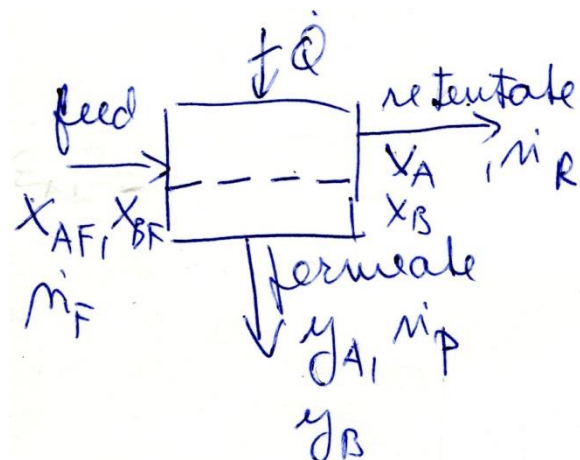 Q̇
feed
retentate
X_AF, X_BF
X_A, ṅ_R
X_B
ṅ_F
permeate
y_A, ṅ_P
y_B